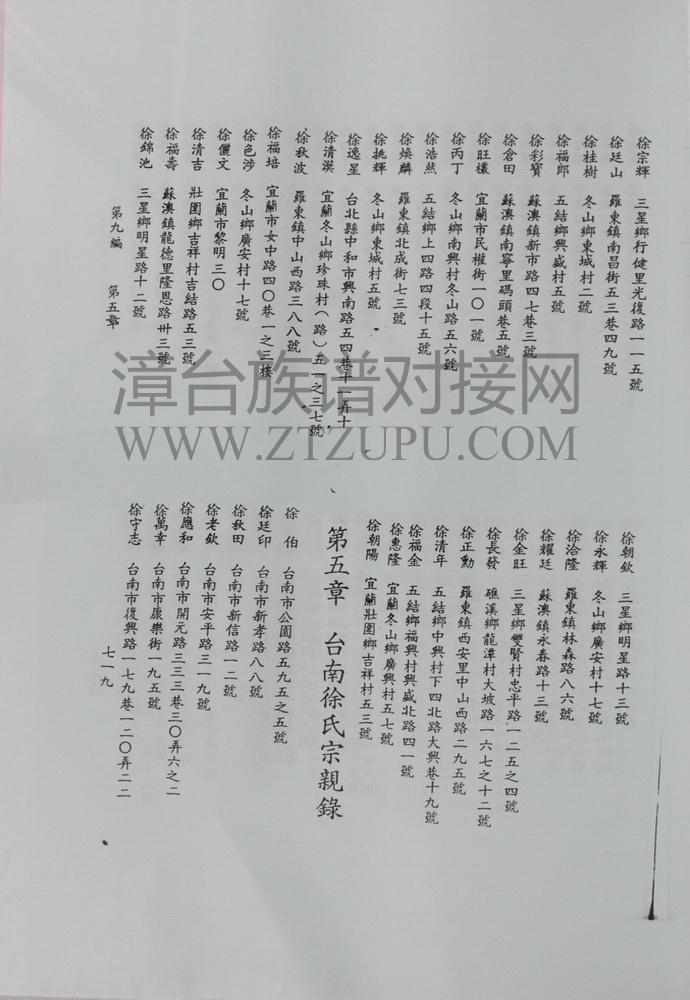 徐宗輝 三星鄉行健里光復路一一五號
徐廷山 羅東鎮南昌街五三巷四九號
徐桂樹 冬山鄉東城村二號
徐福郎 五結鄉興盛村五號
徐彩寶 蘇澳鎮新市路四七巷三號
徐倉田 蘇澳鎮南寧里碼頭巷五號
徐旺欉 宜蘭市民權街一〇一號
徐丙丁 冬山鄉南興村冬山路五六號
徐浩然 五結鄉上四路四段十五號
徐煥麟 羅東鎮北成街七三號
徐挑輝 冬山鄉東城村五號
徐逸星 台北縣中和市興南路五四巷十一弄十
徐清漢 宜蘭冬山鄉珍珠村（路）五一之三七號
徐秋波 羅東鎮中山西路三八八號
徐福培 宜蘭市女中路四〇巷一之三樓
徐色涉 冬山鄉廣安村十七號
徐儷文 宜蘭市黎明三〇
徐清吉 壯圍鄉吉祥村吉結路五三號
徐福壽 蘇澳鎮龍德里隆恩路卅三號
徐錦池 三星鄉明星路十二號
第九編 第五章
徐朝欽 三星鄉明星路十三號
徐永輝 冬山鄉廣安村十七號
徐洽隆 羅東鎮林森路八六號
徐耀廷 蘇澳鎮永春路十三號
徐金旺 三星鄉雙賢村忠平路一二五之四號
徐長發 礁溪鄉龍潭村大坡路一六七之十二號
徐正勳 羅東鎮西安里中山西路二九五號
徐清年 五結鄉中興村下四北路大興巷十九號
徐福金 五結鄉福興村興盛北路四一號
徐惠隆 宜蘭冬山鄉廣興村五七號
徐朝陽 宜蘭壯圍鄉吉祥村五三號
第五章 台南徐氏宗親錄
徐 伯 台南市公園路五九五之五號
徐廷印 台南市新孝路八八號
徐秋田 台南市新信路一二號
徐老欽 台南市安平路三一九號
徐應和 台南市開元路三三三巷三〇弄六之二
徐萬幸 台南市康樂街一九五號
徐守志 台南市復興路一七九巷一二〇弄二二
七一九
漳台族谱对接网
WWW.ZTZUPU.COM